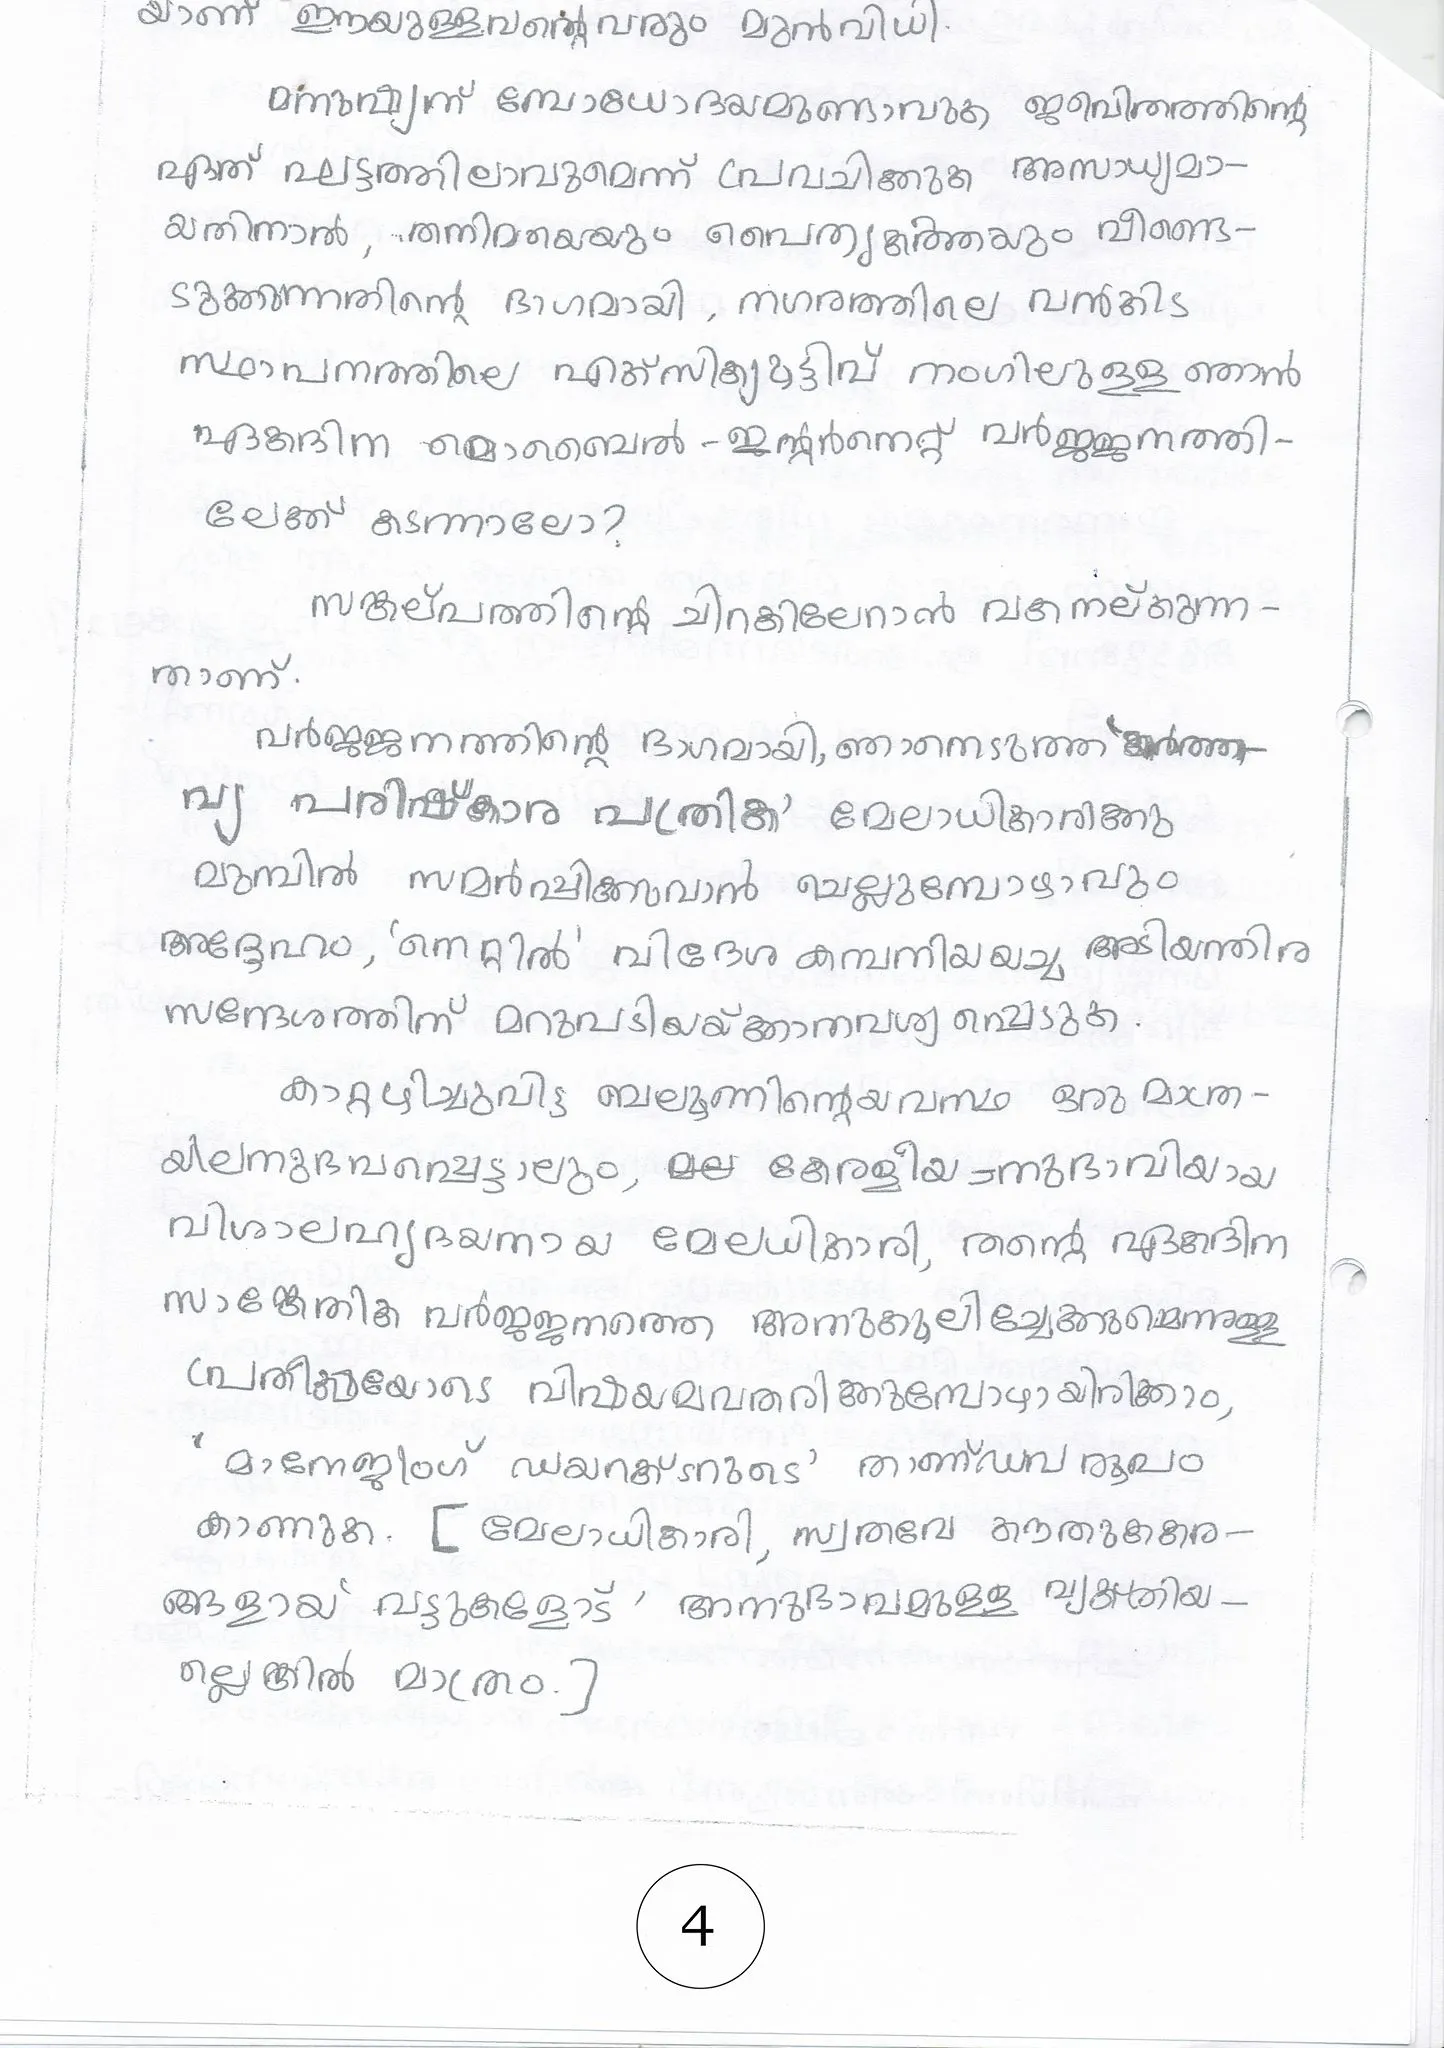 യാണ് ഈയുള്ളവന്റെവരും മുൻവിധി.
മനുഷ്യന് ബോധോദയമുണ്ടാവുക ജീവിതത്തിന്റെ
ഏത് ഘട്ടത്തിലാവുമെന്ന് പ്രവചിക്കുക അസാധ്യമാ-
യതിനാൽ, തനിമയെയും പൈതൃകത്തെയും വീണ്ടെ-
ടുക്കുന്നതിന്റെ ഭാഗമായി, നഗരത്തിലെ വൻകിട
സ്ഥാപനത്തിലെ എക്സിക്യുട്ടിവ് നംഗിലുള്ള ഞാൻ
ഏകദിന മൊബൈൽ-ഇന്റർനെറ്റ് വർജ്ജനത്തി-
ലേക്ക് കടന്നാലോ?
സങ്കല്പത്തിന്റെ ചിറകിലേറാൻ വക നല്കുന്ന-
താണ്.
വർജ്ജനത്തിന്റെ ഭാഗമായി, ഞാനെടുത്ത 'കർത്ത-
വ്യ പരിഷ്കാര പത്രിക' മേലാധികാരിക്കു
മുമ്പിൽ സമർപ്പിക്കുവാൻ ചെല്ലുമ്പോഴാവും
അദ്ദേഹം, 'നെറ്റിൽ' വിദേശ കമ്പനിയയച്ച അടിയന്തിര
സന്ദേശത്തിന് മറുപടിയയ്ക്കാനവശ്യപ്പെടുക.
കാറ്റഴിച്ചുവിട്ട ബലൂണിന്റെയവസ്ഥ ഒരു മാത്ര-
യിലനുഭവപ്പെട്ടാലും, കേരളീയനുഭാവിയായ
വിശാലഹൃദയനായ മേലധികാരി, തന്റെ ഏകദിന
സാങ്കേതിക വർജ്ജനത്തെ അനുകൂലിച്ചേക്കുമെന്നുള്ള
പ്രതീക്ഷയോടെ വിഷയമവതരിക്കുമ്പോഴായിരിക്കാം,
'മാനേജിംഗ് ഡയറക്ടറുടെ' താണ്ഡവ രൂപം
കാണുക. [മേലാധികാരി, സ്വതവേ കൗതുകകര-
ങ്ങളായ 'വട്ടുകളോട്' അനുഭാവമുള്ള വ്യക്തിയ-
ല്ലെങ്കിൽ മാത്രം.]
4